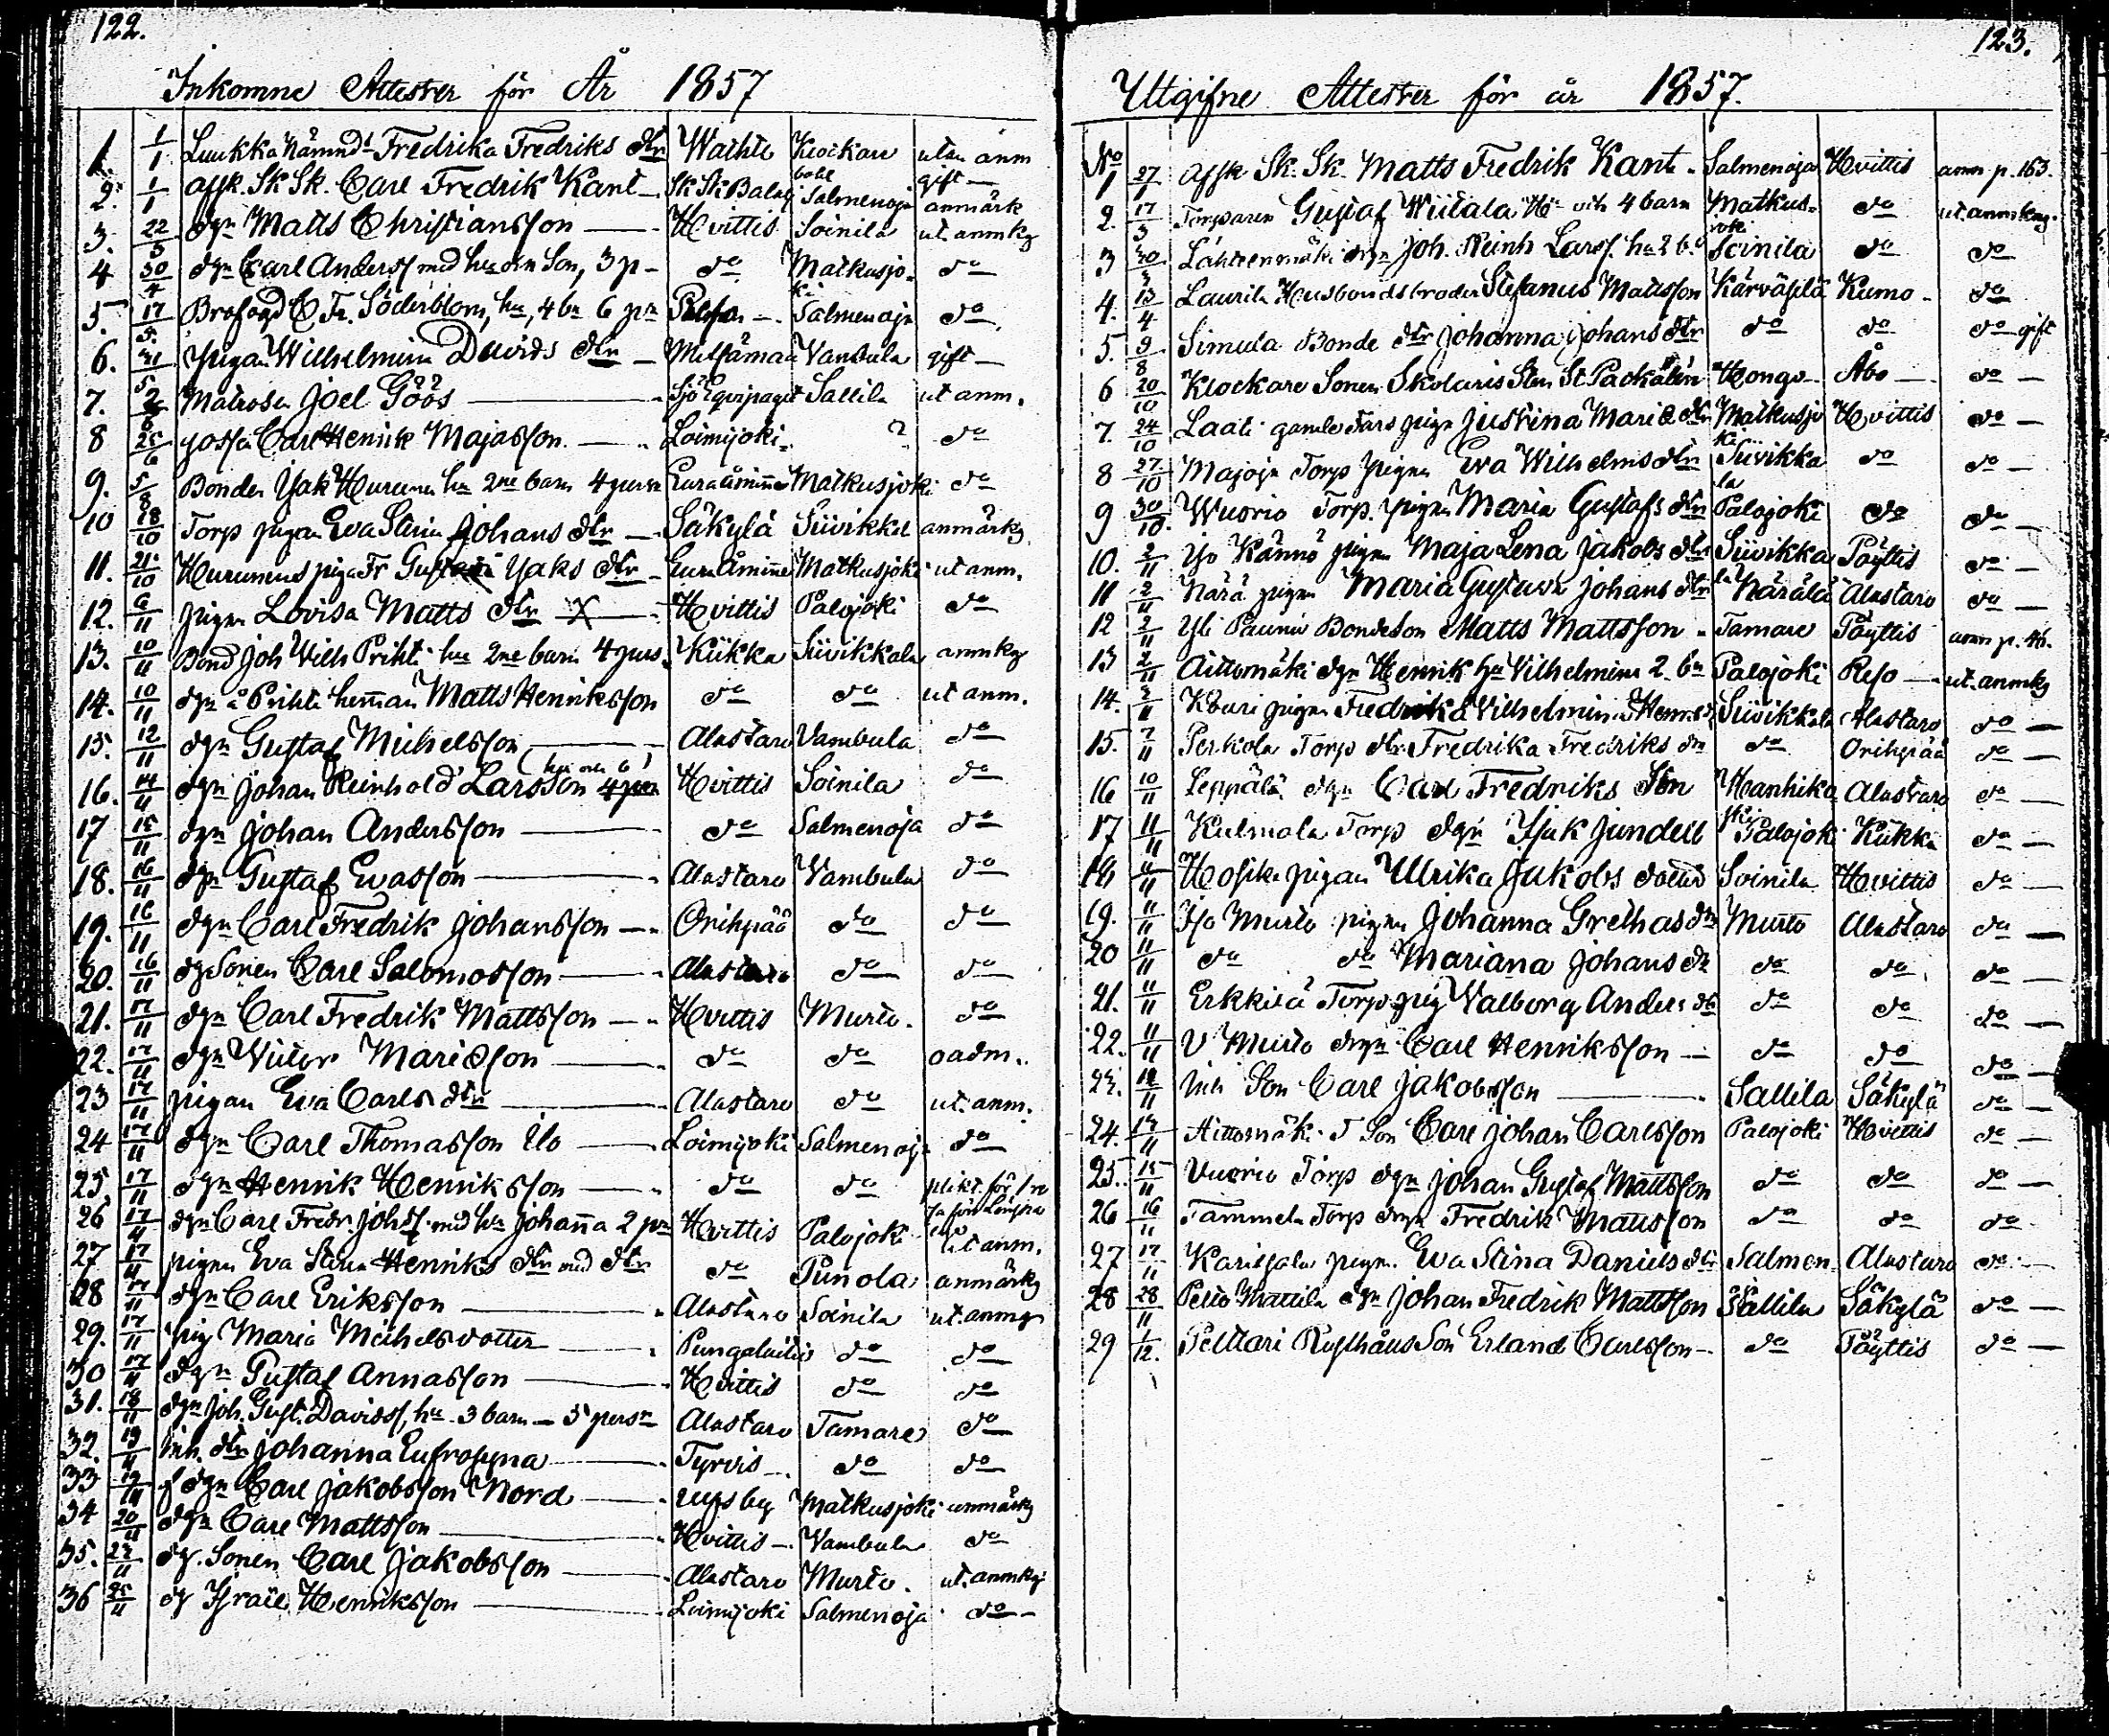 122.
Inkomne Attester för År 1857
1. 1/1 Luukka hämnd Fredrika Fredriks dtr Wathte Klockare bohl utan anm
2. 1/1 afsk. Sk Sk. Carl Fredrik Kant Sk Sk Balalj Salmenoja gift anmärk
3. 22/3 dgn Matts Christiansson Hvittis Soinila ut. anmkg
4 30/4 dgn Carl Anderss med hu och Son, 3 p do Matkusjoki do
5. 17/5 Brofogd C Fr. Söderblom, hu, 4 bn 6 prn Salmenoja do
6. 31/5 pigan Wilhelmina Davids dtr Metsämaa Vambula gift
7. 2/6 Matrosen Joel Göös Sjö Eqvipaget Sallila ut anm.
8 25/6 gossen Carl Henrik Majasson Loimijoki ? do
9. 5/8 Bonden Isak Hurunen hu 2ne barn 4 persn Euraåminne Matkusjoki do
10 18/10 Torp pigan Eva Stina Johans dtr Säkylä Siivikkal anmärkg
11. 21/10 Hurunens piga Fr Gustava Isaks dtr Euraåminne Matkusjoki ut anm.
12. 6/11 pigan Lovisa Matts dtr X Hvittis Palojoki do
13. 10/11 Bond Joh Wilh Prihti hu 2ne barn 4 pers. Kiikka Siivikkala anmkg
14. 10/11 dgn å Prihti hemman Matts Henriksson do do ut anm.
15. 12/11 dgn Gustaf Michelsson Alastaro Vambula do
16. 14/11 dgn Johan Reinhold Larsson 4 prn Hvittis Soinila do
17 15/11 dgn Johan Andersson do Salmenoja do
18. 16/11 dgn Gustaf Evasson Alastaro Vambula do
19. 16/11 dgn Carl Fredrik Johansson Orihpää do do
20. 16/11 dg Sonen Carl Salomosson Alastaro do do
21. 17/11 dgn Carl Fredrik Mattsson Hvittis Murto. do
22. 17/11 dgn Victor Mariæson do do oadm.
23 17/11 pigan Eva Carls dtr Alastaro do ut. anm.
24 17/11 dgn Carl Thomasson Ilo Loimijoki Salmenoja do
25 17/11 dgn Henrik Henriksson do do plikt. för
26 17/11 dgn Carl Fredr Johss med hu Johanna 2 prn Hvittis Palojoki ut anm.
27 17/11 pigan Eva Stina Henriks dtr med dtr do Punola anmärkg
28 17/11 dgn Carl Eriksson Alastaro Soinila ut. anmg
29. 17/11 pig Maria Michelsdotter Pungalaitio do do
30 17/11 dgn Gustaf Annasson Hvittis do do
31. 18/11 dgn Joh. Gust. Davidss, hu 3 barn 5 persn Alastaro Tamare do
32. 19/11 Inh. dtr Johanna Eufrosyna Tyrvis do do
33 19/11 f dgn Carl Jakobsson Nord Matkusjoki anmärkg
34 20/11 dgn Carl Mattsson Hvittis Vambula do
35. 23/11 dg. Sonen Carl Jakobsson Alastaro Murto. ut. anmkg
36 25/11 dg Israel Henriksson Loimijoki Salmenoja do
123.
Utgifne Attester för år 1857.
No
1 27/1 afsk Sk. Sk. Matts Fredrik Kant Salmenoja Hvittis anm p. 163.
2. 17/3 Torparen Gustaf Wiitala Hu och 4 barn Matkusjoki do ut anmkng.
3 30/3 Lähteenmäki drgn Joh. Reinh Larss. hu 2 b. Soinila do do
4. 13/4 Laurila Husbondsbroder Stefanus Mattsson Kärväsilä Kumo do
5. 9/8 Simula Bonde dtr Johanna Johans dtr do do do gift
6 20/10 Klockare Sonen Skolaris Sten St Packalén Hongo Åbo do
7. 24/10 Laati gamle Fars piga Justina Mariæ dtr Matkusjoki Hvittis do
8 27/10 Majoja Torp pigan Eva Wilhelms dtr Siivikkala do do
9 30/10. Wuorio Torp. pigan Maria Gustafs dtr Palojoki do do
10. 2/11 Iso Kännö pigan Maja Lena Jakobs dtr Siivikkala Pöytis do
11 2/11 Närä pigan Maria Gustava Johans dtr Närälä Alastaro do
12 2/11 Yli Paunu Bondeson Matts Mattsson Tamare Pöyttis anm p. 46.
13 2/11 Aittomäki dgn Henrik hu Vilhelmina 2 bn Palojoki Reso ut. anmkg
14. 2/11 Kouri pigan Fredrika Vilhelmina Henrs d. Siivikkala Alastaro do
15. 7/11 Perkola Torp dtr Fredrika Fredriks dtr do Orihpää do
16 10/11 Leppälä dgn Carl Fredriks Son Hanhikoski Alastaro do
17 11/11 Kulmala Torp dgn Isak Jundell Palojoki Kiikka do
18 11/11 Hosike pigan Ulrika Jakobs dotter Soinila Hvittis do
19. 11/11 Iso Murto pigan Johanna Grethas dtr Murto Alastaro do
20 11/11 do do Mariana Johans dr do do do
21. 11/11 Erkkilä Torp pig Valborg Anders dtr do do do
22. 11/11 V Murto drgn Carl Henriksson do do do
23. 12/11 Inh Son Carl Jakobsson Sallila Säkylä do
24. 14/11 Aittomäki T Son Carl Johan Carlsson Palojoki Hvittis do
25. 15/11 Vuorio Torp dgn Johan Gustaf Mattsson do do do
26 16/11 Tammela Torp drgn Fredrik Mattsson do do do
27 17/11 Karisjala pigan. Eva Stina Daniels dtr Salmenoja Alastaro do
28 28/11 Pelto Mattila dgn Johan Fredrik Mattsson Sallila Säkylä do
29 1/12. Pelttari Rusthåns Son Erland Carlsson do Pöyttis do